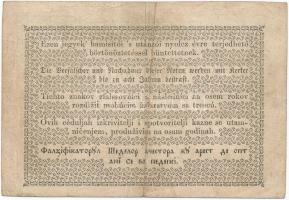 Ezen jegyek' hamisitói 's utánzói nyolcz évre terjedhető
börtönöztetéssel büntettetnek.
Die Verfälscher und Nachahmer dieser Noten werden mit Kerker
bis zu acht Jahren bestraft.
Tichto znakov falšovatelji a nasledníci za osem rokov
Ovih ceduljah izkrivitelji i spotvoritelji kazne se utam-
ničenjem, produživim na osam godinah.
Фалшификаторул Шеделор ачестора ку арест де опт
ані се ва педепсі.